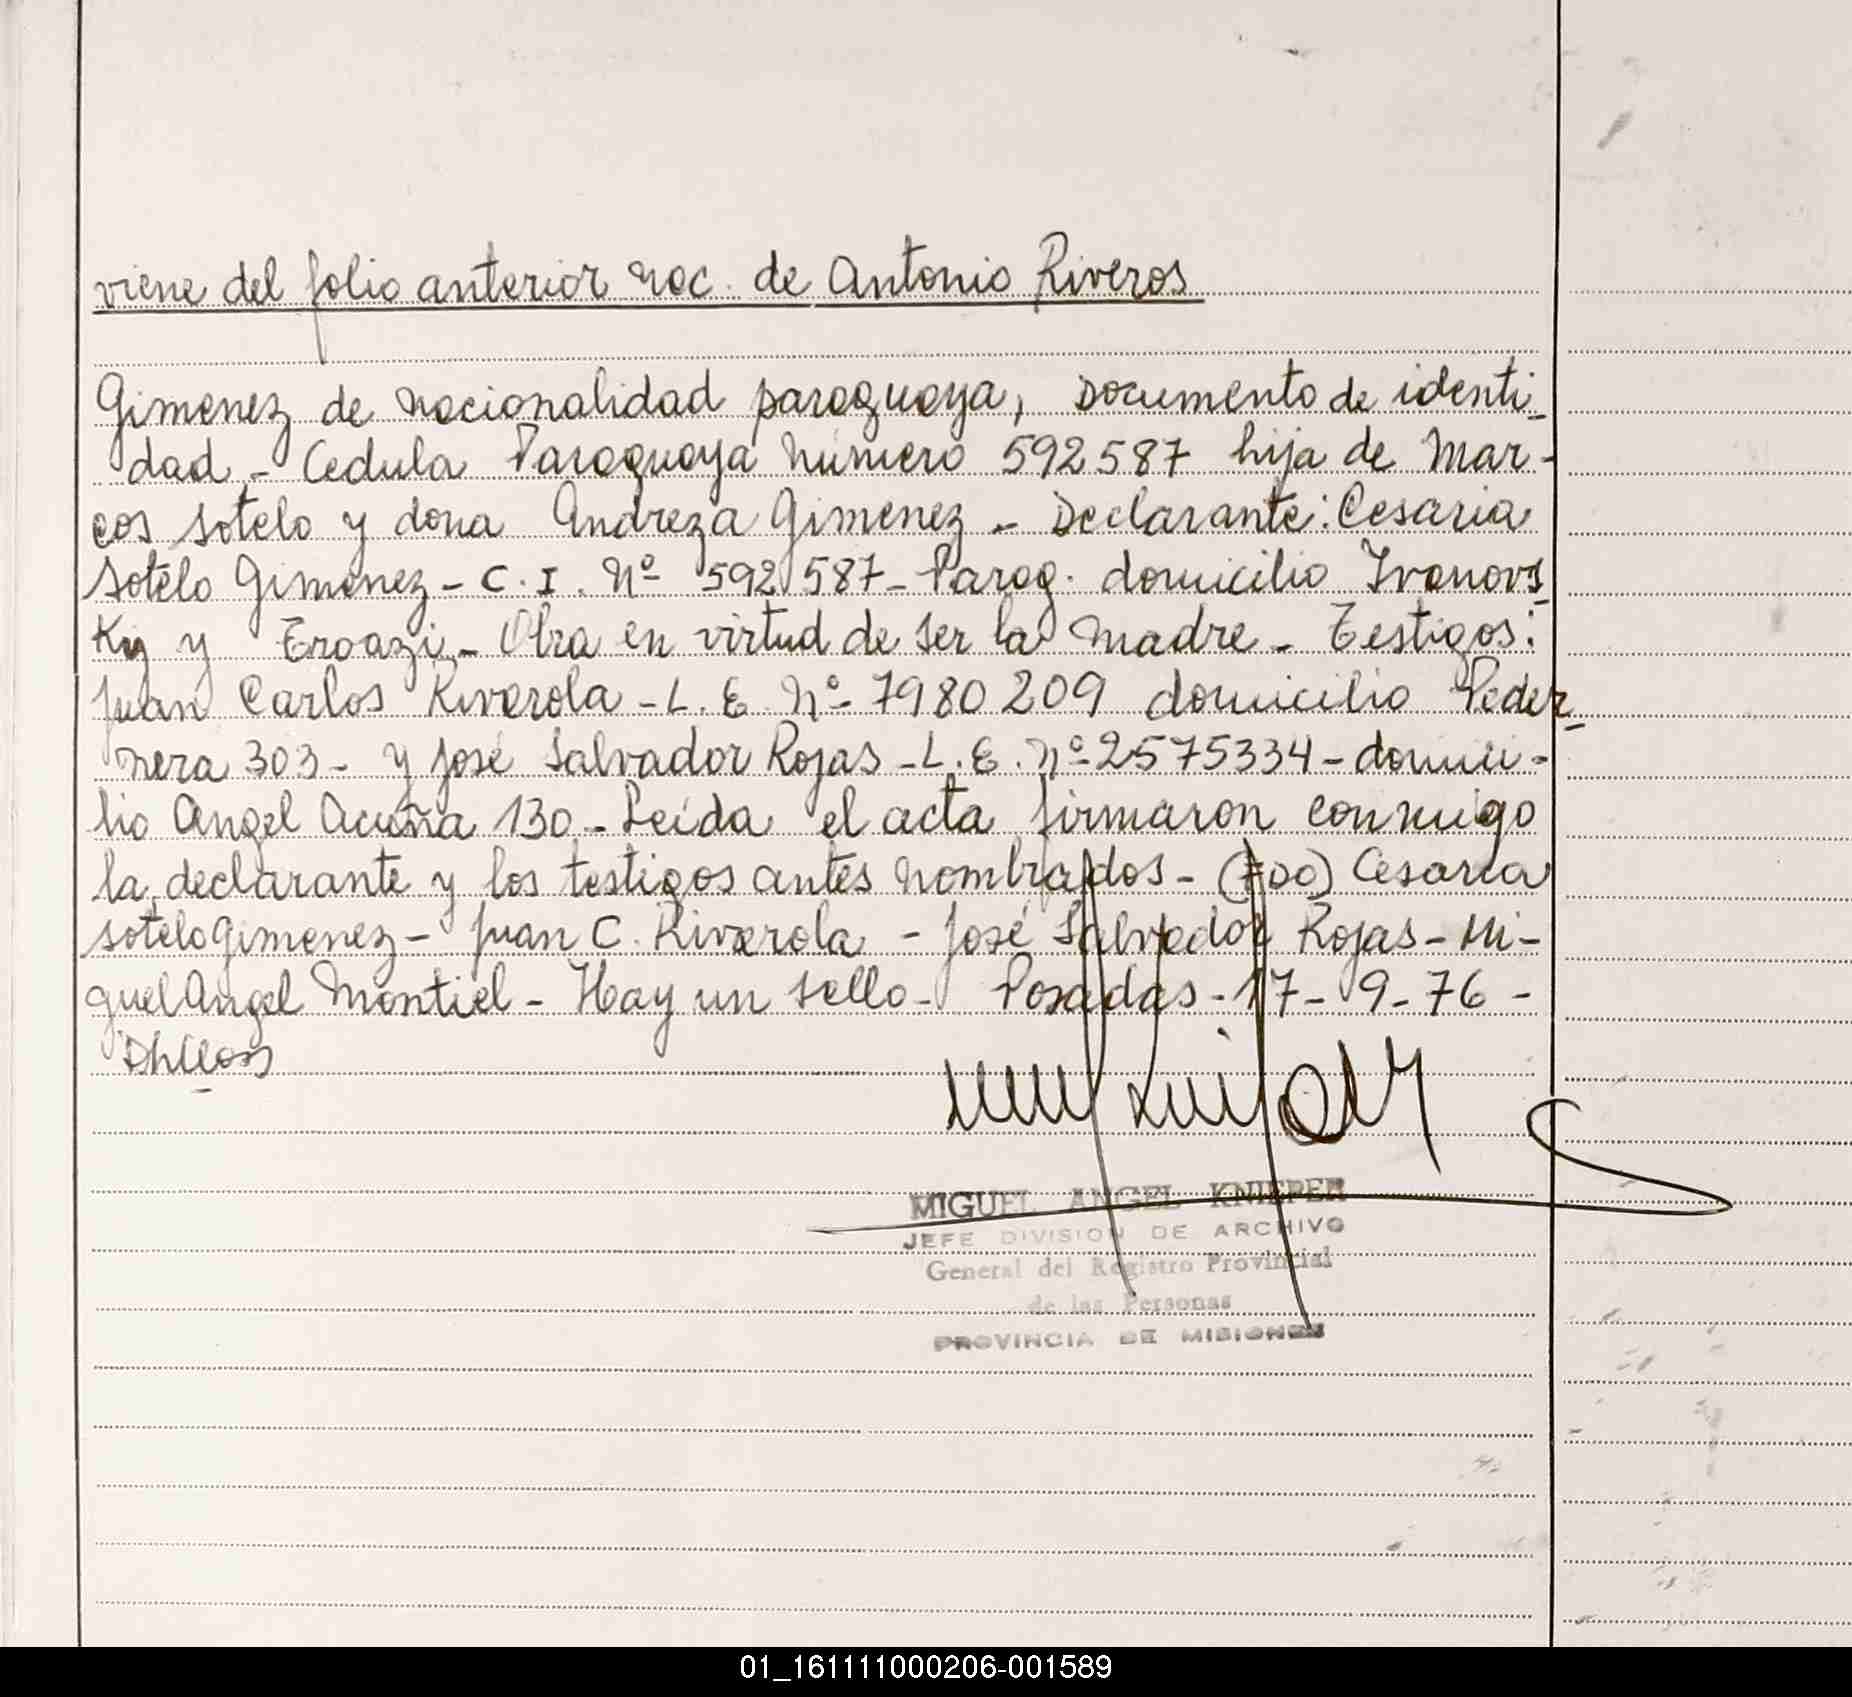 viene del folio anterior nac. de Antonio Riveros
Gimenez de nacionalidad paraguaya, Documento de identi_
dad_ Cedula Paraguaya número 592587 hija de Mar-
cos Sotelo y dona Andreza Gimenez_ Declarante: Cesaria
Sotelo Gimenez_ C. I. Nº 592587_ Parag. domicilio Ivanovs_
Ky y _ Obra en virtud de ser la madre_ Testigos:
Juan Carlos Riverola_ L. E. Nº 7980209 domicilio Peder_
nera 303- y José Salvador Rojas_ L. E. Nº 2575334_ domici-
lio Angel Acuña 130_ Leída el acta firmaron conmigo
la declarante y los testigos antes nombrados- (FDO) Cesaria
Sotelo Gimenez- Juan C. Riverola - José Salvador Rojas- Mi-
guel Angel Montiel- Hay un sello- Posadas-17-9-76-
MIGUEL ANGEL KNIEPER
JEFE DIVISION DE ARCHIVO
General del Registro Provincial
de las Personas
PROVINCIA DE MISIONES
01_161111000206-001589